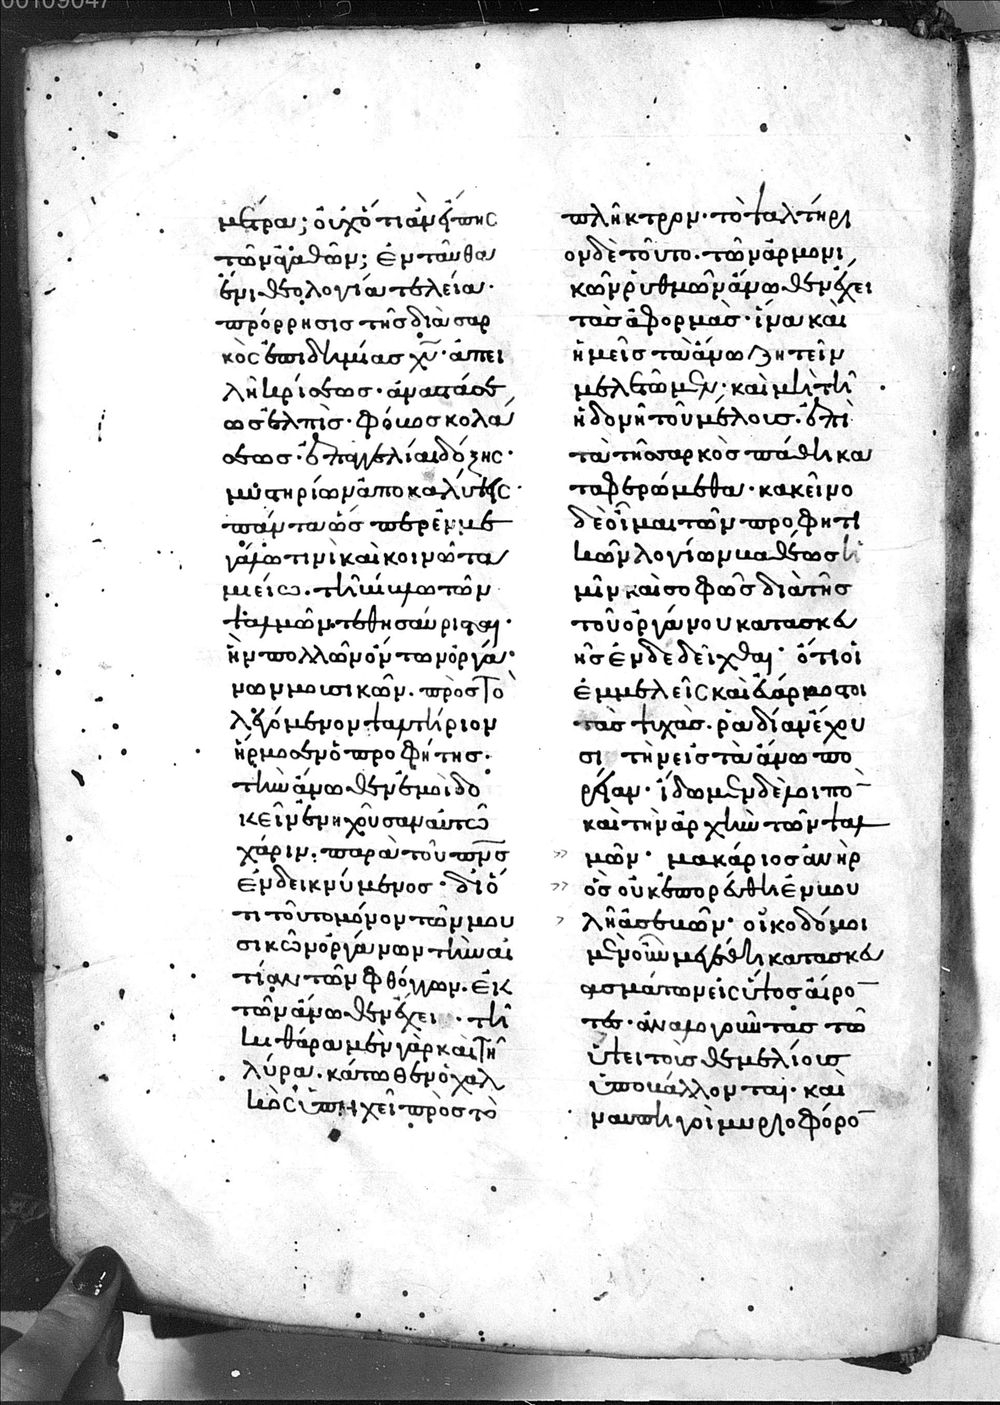 00109047
μέτρα; οὐχ ὅτι ἂν εἴπῃς
τῶν ἀγαθῶν; ἐνταῦθα
ἔνι θεολογία τελεία·
πρόρρησις τῆς διὰ σαρ
κὸς ἐπιδημίας χυ· ἀπει
λὴ κρίσεως· ἀναστάσε
ως ἐλπὶς· φόβος κολά
σεως· ἐπαγγελίαι δόξης·
μυστηρίων ἀποκαλύψεις·
πάντα ὡς περ ἐν με
γάλω τινὶ καὶ κοινῶ τα
μιείω· τῆ βίβλω τῶν
ψαλμῶν τεθησαύρισται·
ἣν πολλῶν ὄντων ὀργά
νων μουσικῶν· πρὸς τὸ
λεγόμενον ψαλτήριον
ἥρμοσεν ὁ προφήτης·
τὴν ἄνωθεν ἐμοὶ δο
κεῖν ἐνηχοῦσαν αὐτῶ
χάριν· παρὰ τοῦ πνς
ἐνδεικνύμενος· διό
τι τοῦτο μόνον τῶν μου
σικῶν ὀργάνων τὴν αἰ
τίαν τῶν φθόγγων· ἐκ
τῶν ἄνωθεν ἔχει· τῆ
κιθάρα μὲν γὰρ καὶ τῆ
λύρα· κάτωθεν ὁ χαλ
κὸς ὑπηχεῖ πρὸς τὸ
πλῆκτρον· τὸ ψαλτήρι
ον δὲ τοῦτο· τῶν ἁρμονι
κῶν ῥυθμῶν ἄνωθεν ἔχει
τὰς ἀφορμὰς· ἵνα καὶ
ἡμεῖς τὰ ἄνω ζητεῖν
μελετῶμεν· καὶ μὴ τῆ
ἡδονῆ τοῦ μέλους· ἐπὶ
τὰ τῆς σαρκὸς πάθη κα
ταφερώμεθα· κακεῖνο
δὲ οἶμαι τῶν προφητι
κῶν λογίων βαθέως ἡ
μῖν καὶ σοφῶς διὰ τῆς
τοῦ ὀργάνου κατασκευ
ῆς ἐνδεδεῖχθαι· ὅτι οἱ
ἐμμελεῖς καὶ εὐάρμοστοι
τὰς ψυχὰς· ῥαδίαν ἔχου
σι τὴν εἰς τὰ ἄνω πο
ρείαν· ἴδωμεν δὲ λοιπὸ
καὶ τὴν ἀρχὴν τῶν ψαλ
μῶν· μακάριος ἀνὴρ
ὃς οὐκ ἐπορεύθη ἐν βου
λῆ ἀσεβῶν· οἰκοδόμοι
μὲν οὖν μεγέθη κατασκευ
ασμάτων εἰς ὕψος αἴρο
τες· ἀναλογοῦντας τῶ
ὕψει τοὺς θεμελίους
ὑποβάλλονται· καὶ
ναυπηγοὶ μυριοφόρο